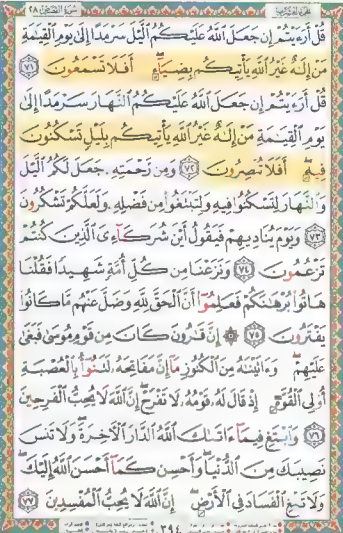 سُورَةُ القَصَصِ ٢٨
قُلْ أَرَءَيْتُمْ إِن جَعَلَ ٱللَّهُ عَلَيْكُمُ ٱلَّيْلَ سَرْمَدًا إِلَىٰ يَوْمِ ٱلْقِيَٰمَةِ
مَنْ إِلَٰهٌ غَيْرُ ٱللَّهِ يَأْتِيكُم بِضِيَآءٍ ۖ أَفَلَا تَسْمَعُونَ ٧١
قُلْ أَرَءَيْتُمْ إِن جَعَلَ ٱللَّهُ عَلَيْكُمُ ٱلنَّهَارَ سَرْمَدًا إِلَىٰ
يَوْمِ ٱلْقِيَٰمَةِ مَنْ إِلَٰهٌ غَيْرُ ٱللَّهِ يَأْتِيكُم بِلَيْلٍ تَسْكُنُونَ
فِيهِ ۖ أَفَلَا تُبْصِرُونَ ٧٢ وَمِن رَّحْمَتِهِۦ جَعَلَ لَكُمُ ٱلَّيْلَ
وَٱلنَّهَارَ لِتَسْكُنُوا۟ فِيهِ وَلِتَبْتَغُوا۟ مِن فَضْلِهِۦ وَلَعَلَّكُمْ تَشْكُرُونَ
٧٣ وَيَوْمَ يُنَادِيهِمْ فَيَقُولُ أَيْنَ شُرَكَآءِىَ ٱلَّذِينَ كُنتُمْ
تَزْعُمُونَ ٧٤ وَنَزَعْنَا مِن كُلِّ أُمَّةٍ شَهِيدًا فَقُلْنَا
هَاتُوا۟ بُرْهَٰنَكُمْ فَعَلِمُوٓا۟ أَنَّ ٱلْحَقَّ لِلَّهِ وَضَلَّ عَنْهُم مَّا كَانُوا۟
يَفْتَرُونَ ٧٥ ۞ إِنَّ قَٰرُونَ كَانَ مِن قَوْمِ مُوسَىٰ فَبَغَىٰ
عَلَيْهِمْ ۖ وَءَاتَيْنَٰهُ مِنَ ٱلْكُنُوزِ مَآ إِنَّ مَفَاتِحَهُۥ لَتَنُوٓأُ بِٱلْعُصْبَةِ
أُو۟لِى ٱلْقُوَّةِ إِذْ قَالَ لَهُۥ قَوْمُهُۥ لَا تَفْرَحْ ۖ إِنَّ ٱللَّهَ لَا يُحِبُّ ٱلْفَرِحِينَ
٧٦ وَٱبْتَغِ فِيمَآ ءَاتَىٰكَ ٱللَّهُ ٱلدَّارَ ٱلْءَاخِرَةَ ۖ وَلَا تَنسَ
نَصِيبَكَ مِنَ ٱلدُّنْيَا ۖ وَأَحْسِن كَمَآ أَحْسَنَ ٱللَّهُ إِلَيْكَ ۖ
وَلَا تَبْغِ ٱلْفَسَادَ فِى ٱلْأَرْضِ ۖ إِنَّ ٱللَّهَ لَا يُحِبُّ ٱلْمُفْسِدِينَ ٧٧
٣٩٤